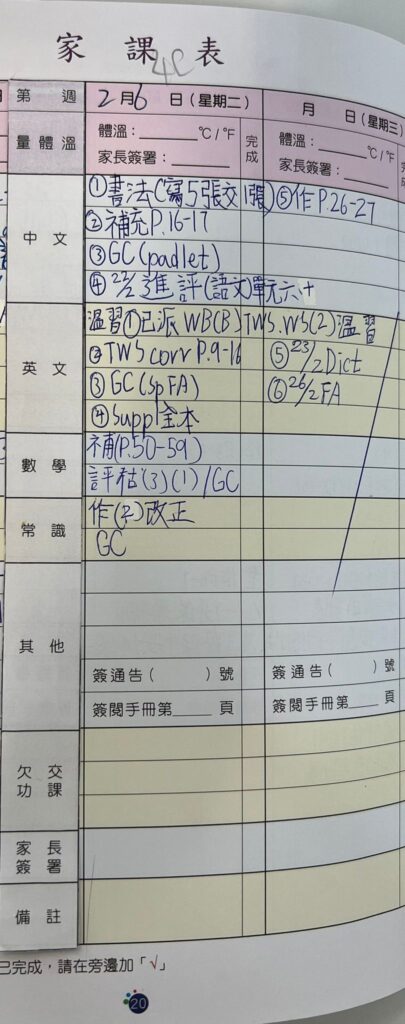 家 課 表
4C
第 週
2月6日(星期二)
月 日(星期三)
量體溫
體溫:______°C/°F
家長簽署:______
完成
體溫:______°C/°F
家長簽署:______
完
中文
①書法C寫5張交1張
⑤作P.26-27
②補充P.16-17
③GC(padlet)
④22/2進評(語文)單元六+
英文
溫習①已派WB(B)TWS.WS(2)溫習
②TWS corr P.9-16
⑤23/2Dict
③GC(SpFA)
⑥26/2FA
④Suppl全本
數學
補(P.50-59)
評估(3)(1)/GC
常識
作(四)改正
GC
其他
簽通告( )號
簽通告( )號
簽閱手冊第____頁
簽閱手冊第____頁
欠交
功課
家長
簽署
備註
已完成,請在旁邊加「√」
20